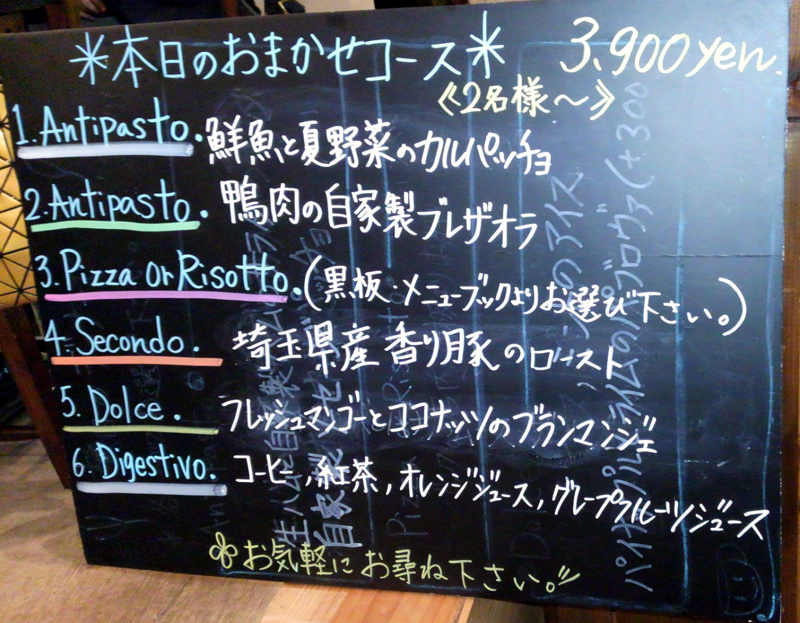 *本日のおまかせコース* 3.900yen.
《2名様〜》
1.Antipasto. 鮮魚と夏野菜のカルパッチョ
2.Antipasto. 鴨肉の自家製ブレザオラ
3.Pizza or Risotto. (黒板・メニューブックよりお選び下さい。)
4.Secondo. 埼玉県産香り豚のロースト
5.Dolce. フレッシュマンゴーとココナッツのブランマンジェ
6.Digestivo. コーヒー,紅茶,オレンジジュース,グレープフルーツジュース
お気軽にお尋ね下さい。